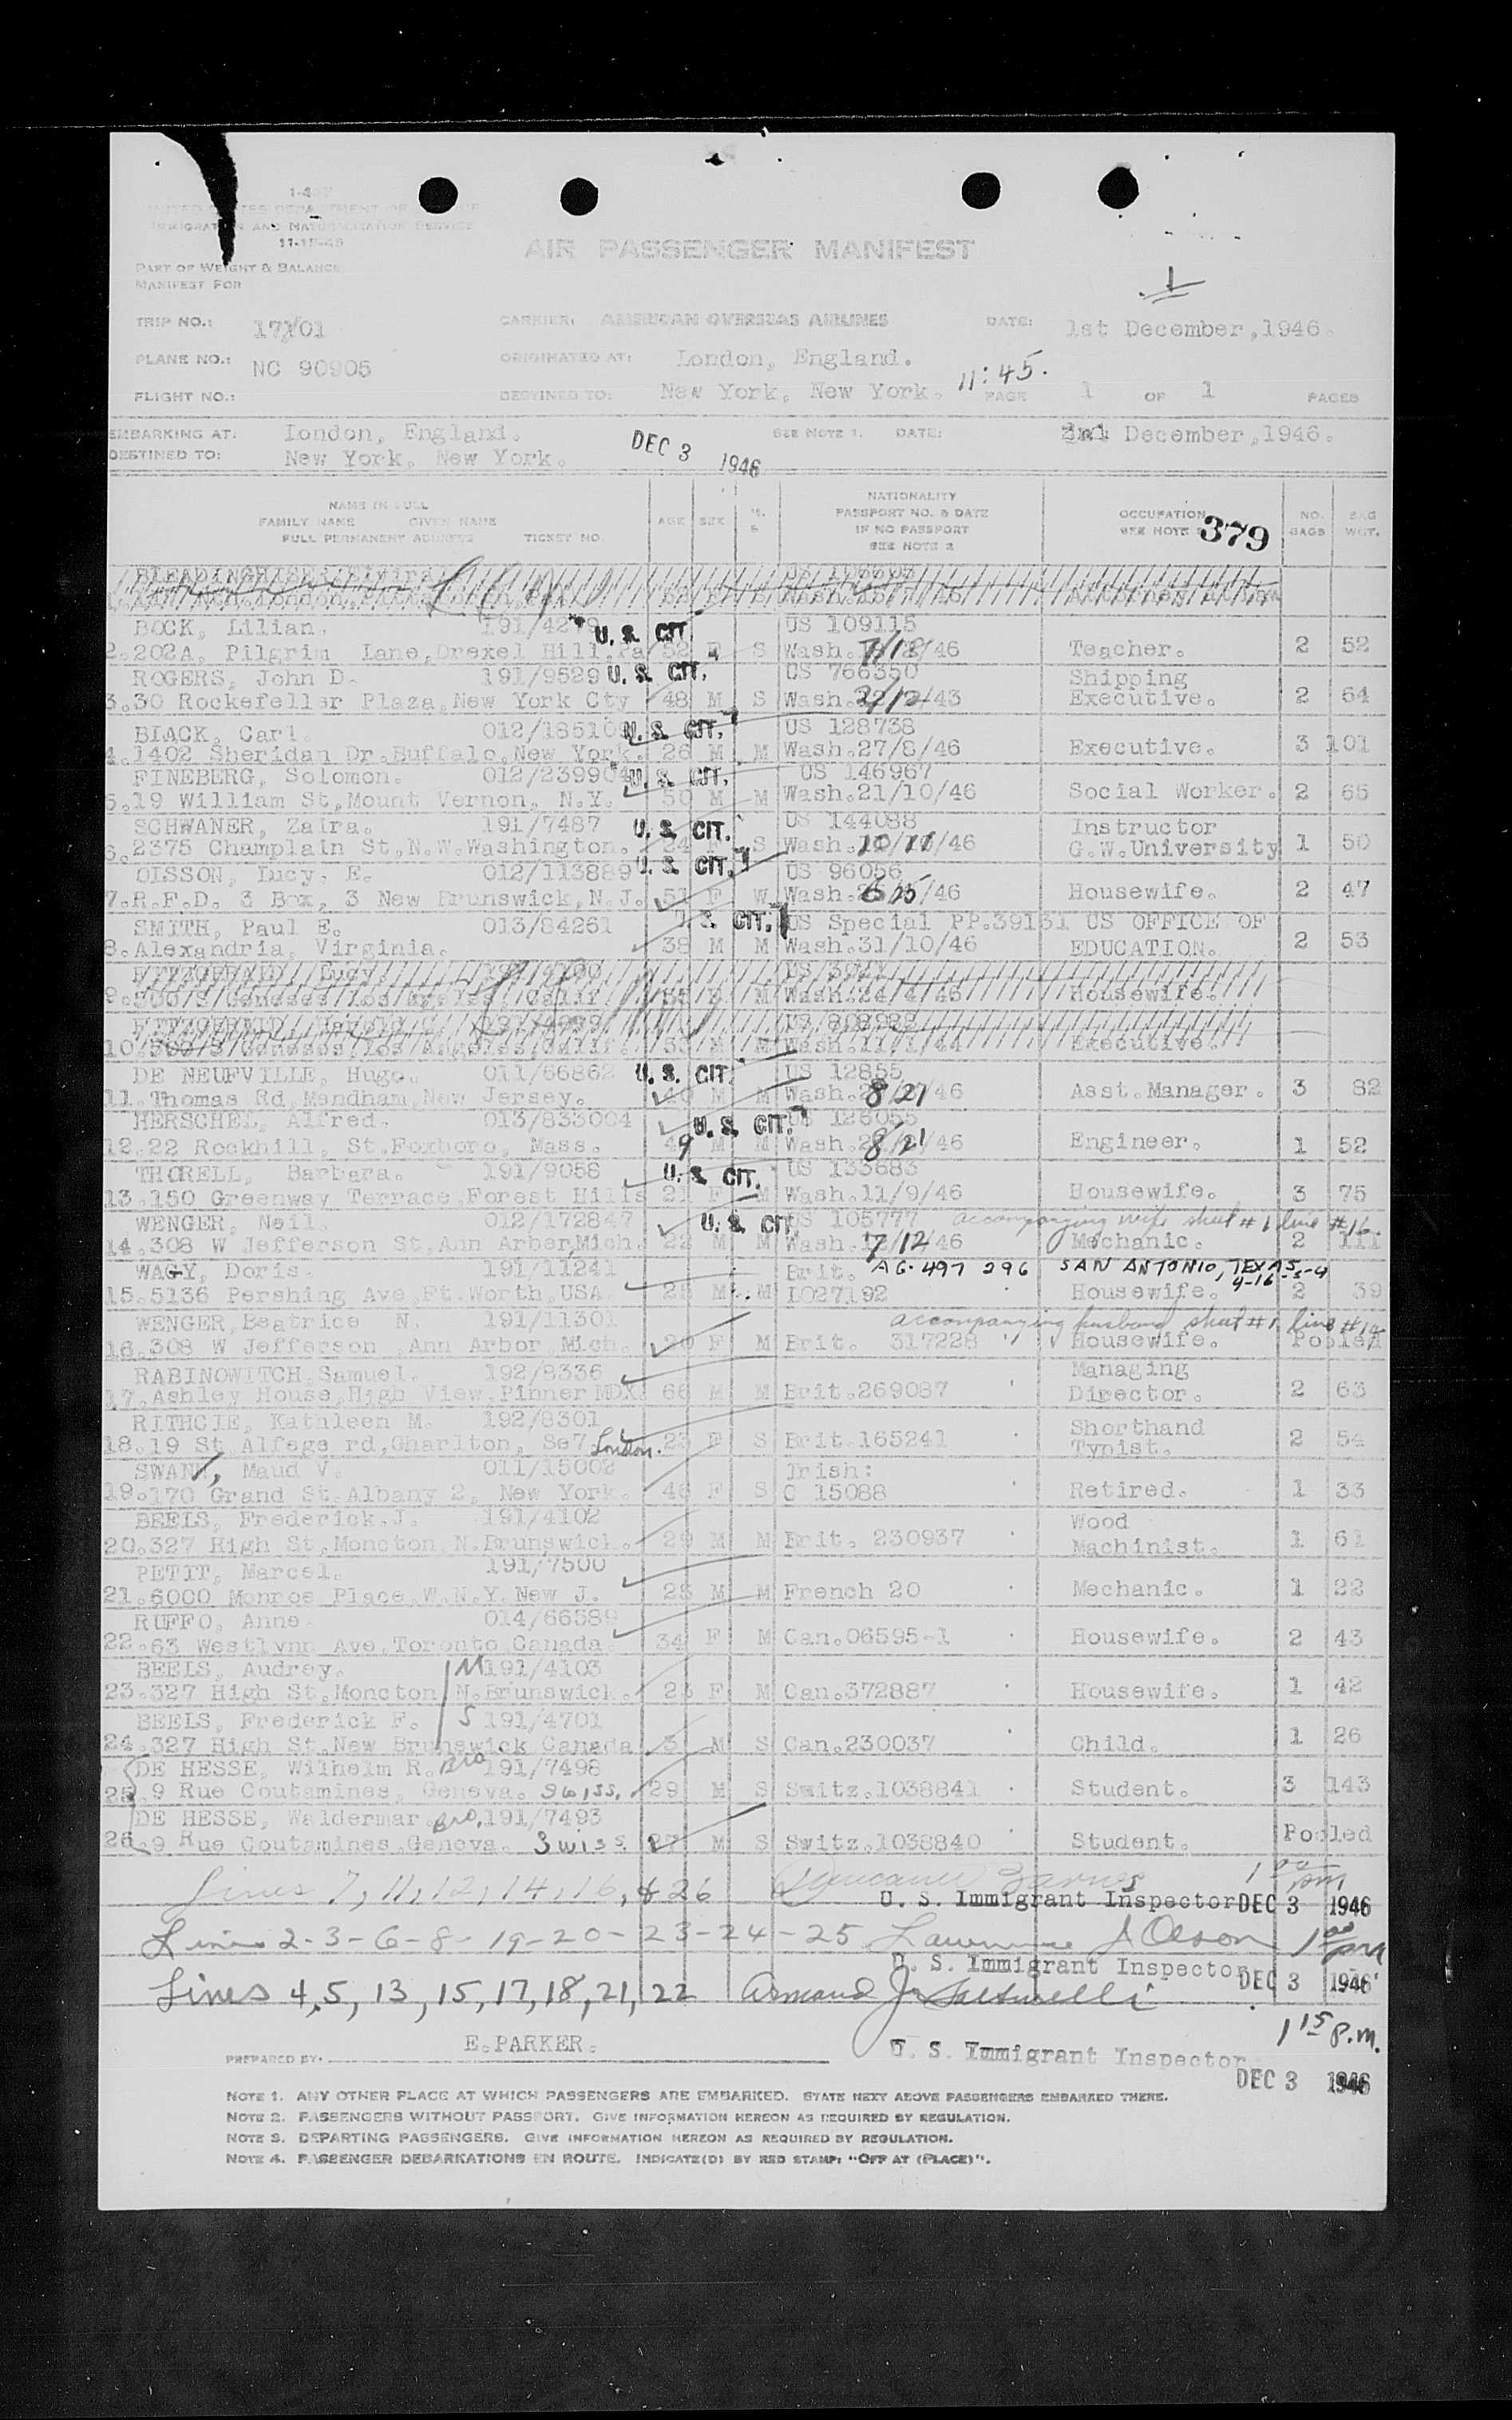 AIR PASSENGER MANIFEST
IMMIGRATION AND NATURALIZATION SERVICE
PART OF WEIGHT & BALANCE
MANIFEST FOR
1
TRIP NO.: 171/01 CARRIER: AMERICAN OVERSEAS AIRLINES DATE: 1st December,1946.
PLANE NO.: NC 90905 ORIGINATED AT: London, England.
FLIGHT NO.: DESTINED TO: New York, New York. 11:45. PAGE 1 OF 1 PAGES
EMBARKING AT: London, England. SEE NOTE 1. DATE: December,1946.
DESTINED TO: New York, New York. DEC 3 1946
NAME IN FULL
FAMILY NAME GIVEN NAME
FULL PERMANENT ADDRESS TICKET NO.
AGE SEX M. S
NATIONALITY
PASSPORT NO. & DATE
IF NO PASSPORT
SEE NOTE 2
OCCUPATION
SEE NOTE 379
NO. BAGS BAG WGT.
BOCK, Lilian. 191/4279 U. S. CIT. US 109115
2.202A, Pilgrim Lane,Drexel Hill.Pa 52 F S Wash. /46 Teacher. 2 52
ROGERS, John D. 191/9529 U. S. CIT. US 766350 Shipping
3.30 Rockefeller Plaza,New York Cty 48 M S Wash. /43 Executive. 2 64
BLACK, Carl. 012/185109 U. S. CIT. US 128738
4.1402 Sheridan Dr.Buffalo,New York. 26 M M Wash.27/8/46 Executive. 3 101
FINEBERG, Solomon. 012/239904 U. S. CIT. US 146967
5.19 William St,Mount Vernon, N.Y. 50 M M Wash.21/10/46 Social Worker. 2 65
SCHWANER, Zaira. 191/7487 U. S. CIT. US 144088 Instructor
6.2375 Champlain St,N.W.Washington. 24 F S Wash. /46 G.W.University 1 50
OLSSON, Lucy. E. 012/113889 U. S. CIT. US 96056
7.R.F.D. 3 Box, 3 New Brunswick,N.J. 51 F W Wash. /46 Housewife. 2 47
SMITH, Paul E. 013/84261 U. S. CIT. US Special PP.39151 US OFFICE OF
8.Alexandria, Virginia. 38 M M Wash.31/10/46 EDUCATION. 2 53
9. M Wash.24/4/45 Housewife.
10. 53 M M Wash.11/1/44 Executive.
DE NEUFVILLE, Hugo. 011/66862 U. S. CIT. US 12855
11.Thomas Rd,Mendham,New Jersey. 40 M M Wash. 8/21/46 Asst.Manager. 3 82
HERSCHEL, Alfred. 013/833004 U. S. CIT. US 126055
12.22 Rockhill, St.Foxboro, Mass. 49 M M Wash. 8/21/46 Engineer. 1 52
THORELL, Barbara. 191/9058 U. S. CIT. US 133683
13.150 Greenway Terrace,Forest Hills 21 F M Wash.11/9/46 Housewife. 3 75
WENGER, Neil. 012/172847 U. S. CIT. US 105777 accompanying wife sheet #1 line #16
14.308 W Jefferson St,Ann Arber,Mich. 22 M M Wash. 7/12/46 Mechanic. 2 111
WAGY, Doris. 191/11241 Brit. AG-497 296 SAN ANTONIO, TEXAS
15.5136 Pershing Ave,Ft.Worth,USA. 25 M M LO27192 Housewife. 2 39
WENGER,Beatrice N. 191/11301 accompanying husband sheet #1 line #14
16.308 W Jefferson ,Ann Arbor,Mich. 20 F M Brit. 317228 Housewife. Pooled
RABINOWITCH,Samuel. 192/8336 Managing
17.Ashley House,High View,Pinner MDX. 66 M M Brit.269087 Director. 2 63
RITHCIE, Kathleen M. 192/8301 Shorthand
18.19 St Alfege rd,Charlton, Se7 London. 23 F S Brit.165241 Typist. 2 54
SWANN, Maud V. 011/15002 Irish:
19.170 Grand St.Albany 2, New York. 46 F S C 15088 Retired. 1 33
BEELS, Frederick.J. 191/4102 Wood
20.327 High St,Moncton,N.Brunswick. 29 M M Brit. 230937 Machinist. 1 61
PETIT, Marcel. 191/7500
21.6000 Monroe Place,W.N.Y.New J. 25 M M French 20 Mechanic. 1 22
RUFFO, Anne. 014/66589
22.63 Westlynn Ave,Toronto,Canada. 34 F M Can.06595-1 Housewife. 2 43
BEELS, Audrey. M 191/4103
23.327 High St,Moncton N.Brunswick. 23 F M Can.372887 Housewife. 1 42
BEELS, Frederick F. S 191/4701
24.327 High St.New Brunswick Canada 3 M S Can.230037 Child. 1 26
DE HESSE, Wilhelm R. Bro 191/7498
25.9 Rue Coutamines, Geneva. Swiss. 29 M S Switz.1038841 Student. 3 143
DE HESSE, Waldermar. Bro. 191/7493
26.9 Rue Coutamines,Geneva. Swiss. 27 M S Switz.1038840 Student. Pooled
Lines 7, 11, 12, 14, 16, & 26 1 00 pm
U. S. Immigrant Inspector DEC 3 1946
Lines 2-3-6-8-19-20-23-24-25 Lawrence A Olson 1 00 pm
U. S. Immigrant Inspector DEC 3 1946
Lines 4, 5, 13, 15, 17, 18, 21, 22 Armand J.
1 15 P.M.
PREPARED BY. E.PARKER. U. S. Immigrant Inspector
DEC 3 1946
NOTE 1. ANY OTHER PLACE AT WHICH PASSENGERS ARE EMBARKED. STATE NEXT ABOVE PASSENGERS EMBARKED THERE.
NOTE 2. PASSENGERS WITHOUT PASSPORT. GIVE INFORMATION HEREON AS REQUIRED BY REGULATION.
NOTE 3. DEPARTING PASSENGERS. GIVE INFORMATION HEREON AS REQUIRED BY REGULATION.
NOTE 4. PASSENGER DEBARKATIONS EN ROUTE. INDICATE(D) BY RED STAMP: "OFF AT (PLACE)".